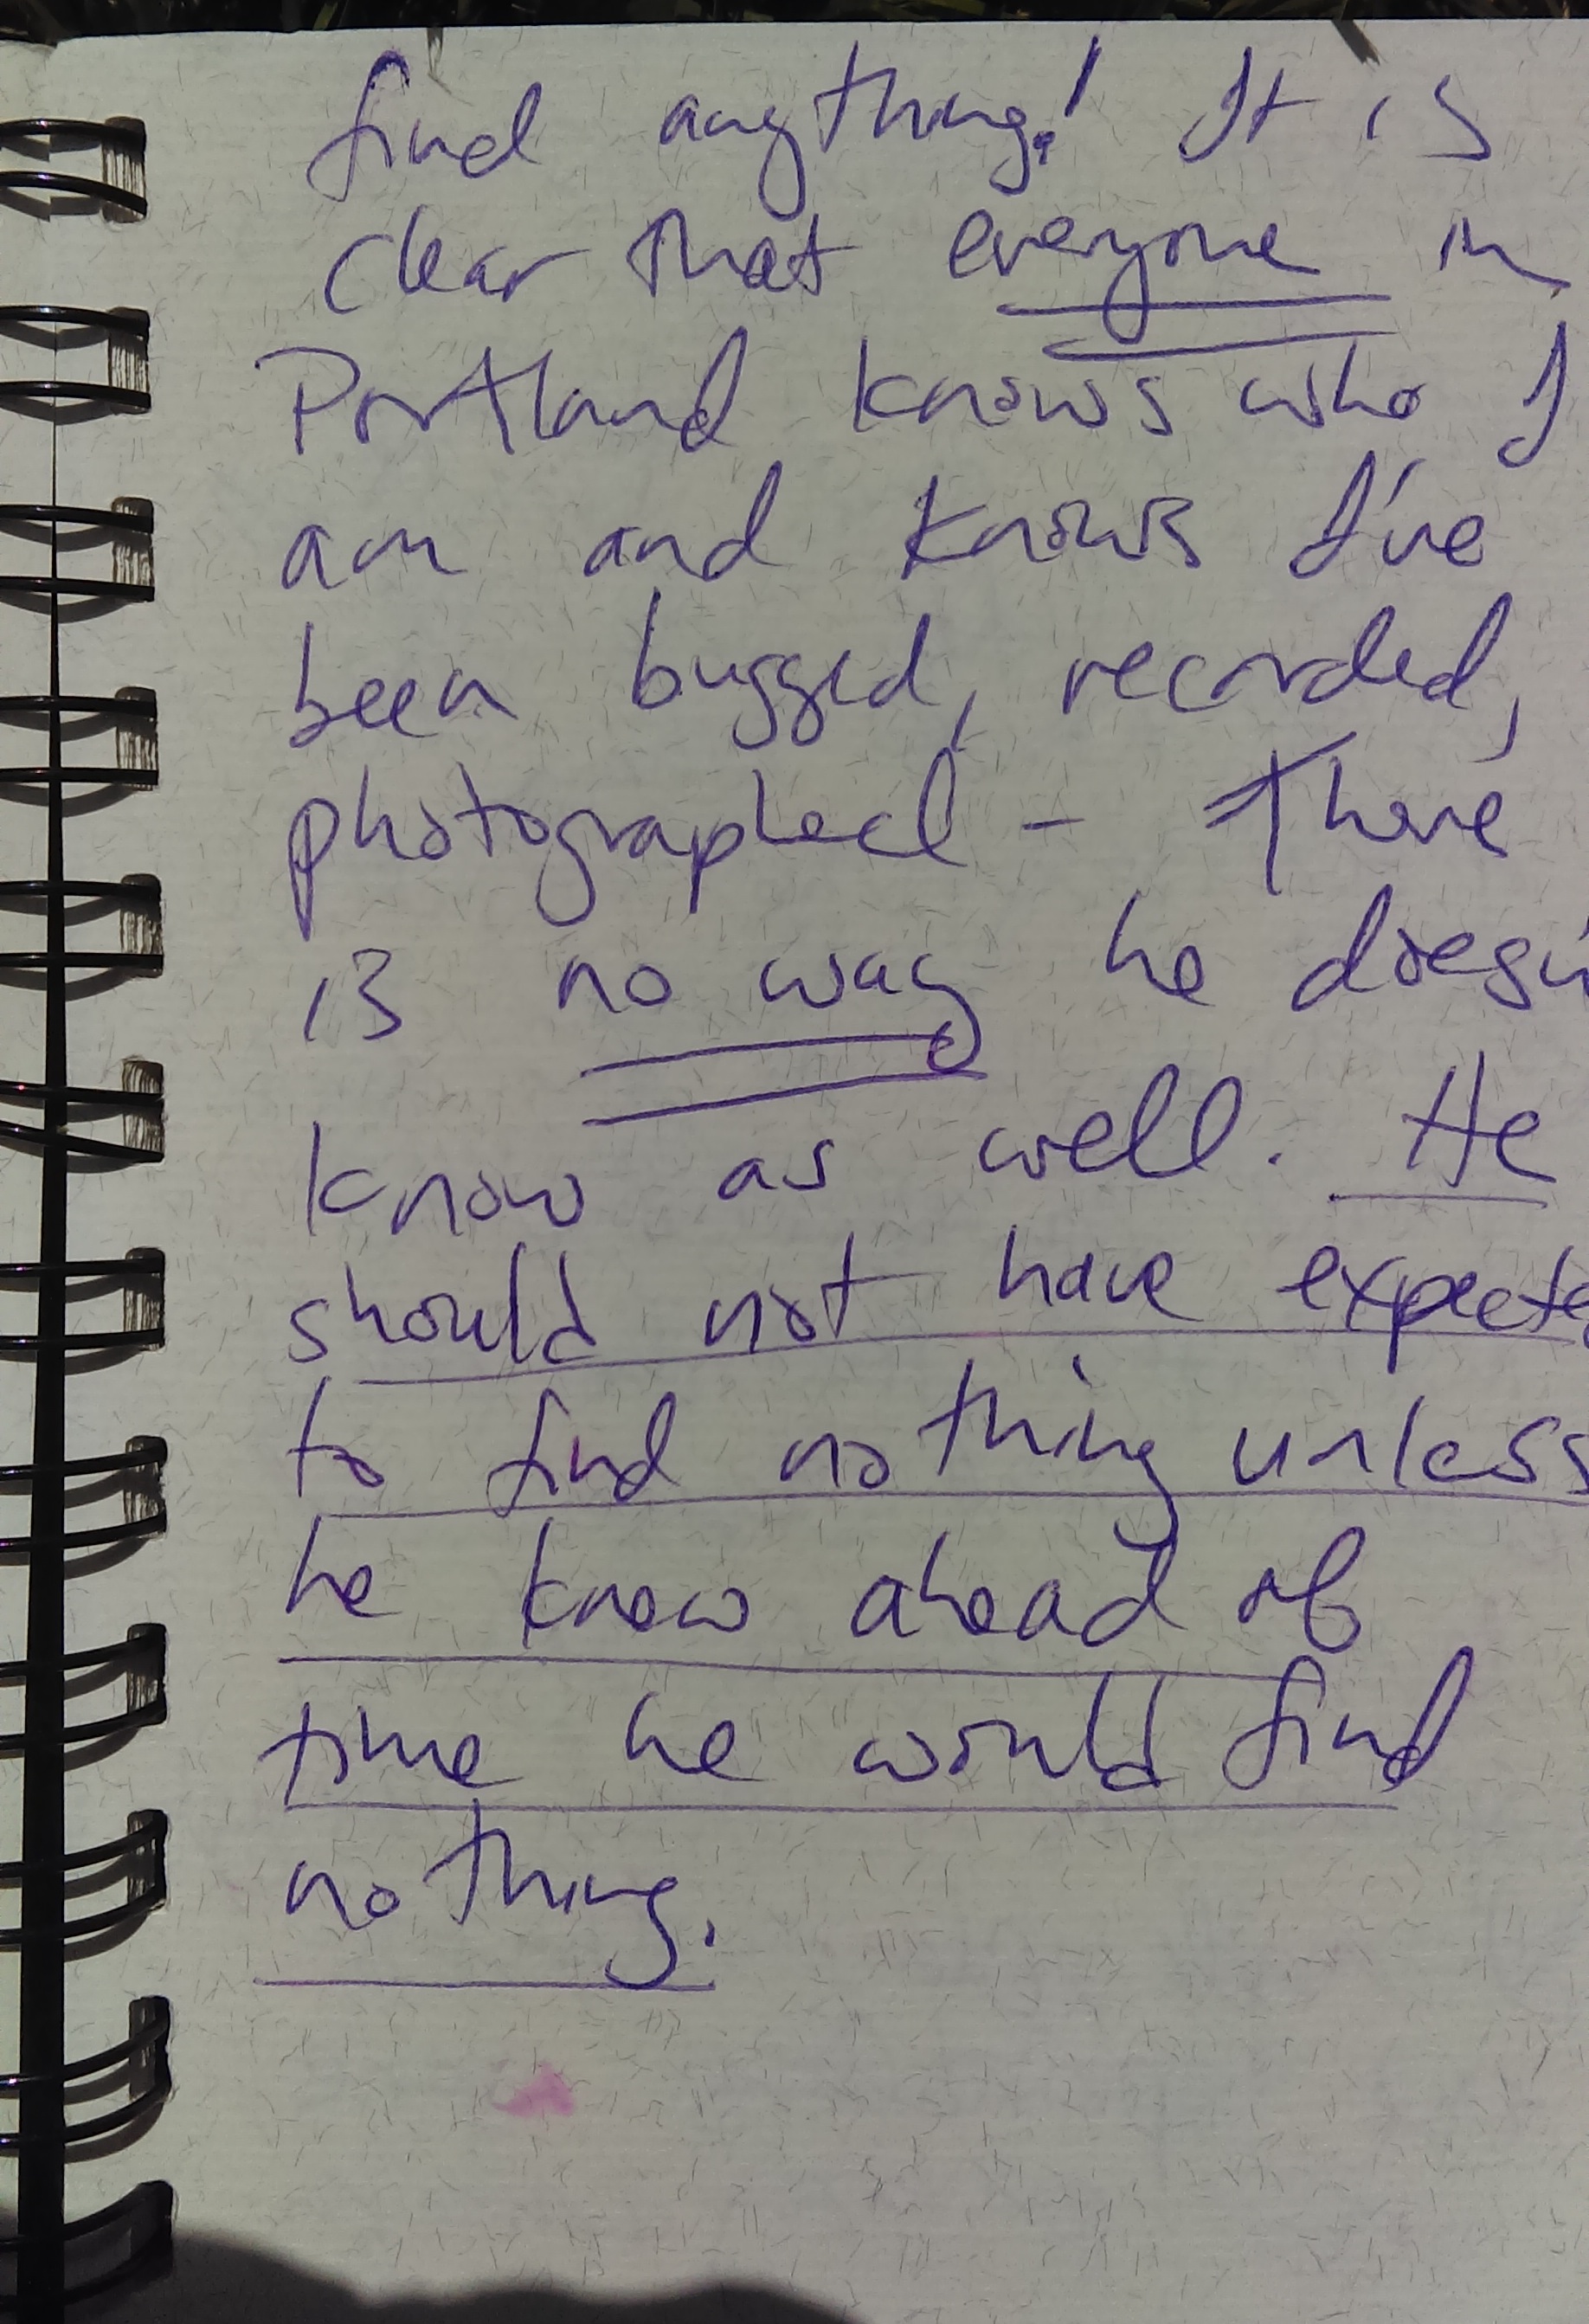 find anything! It is
clear that everyone in
Portland knows who I
am and knows I've
been bugged, recorded,
photographed - There
is no way he doesn'
know as well. He
should not have expecte
to find nothing unless
he knew ahead of
time he would find
nothing.